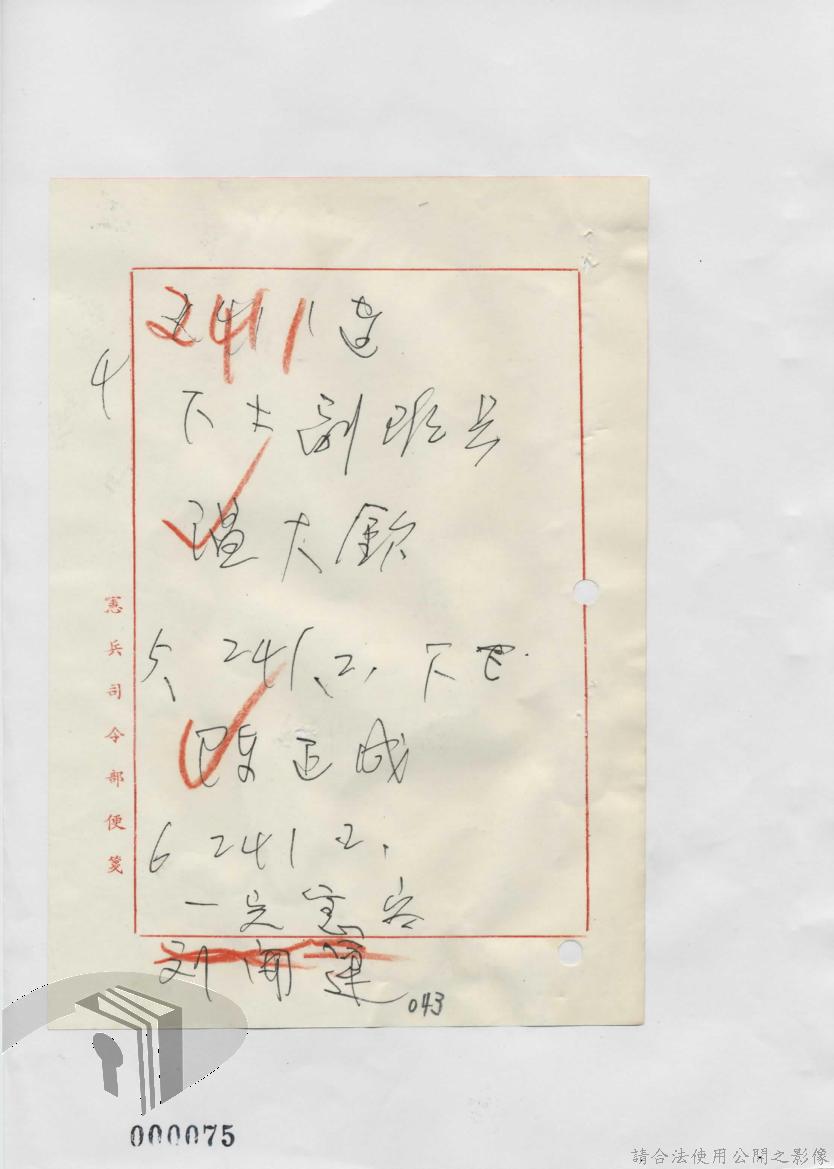 2411連
4
下士副班長
温大欽
5、241、2、下士
陳正成
6 241 2、
一兵憲兵
刘開運
043
憲兵司令部便箋
000075
請合法使用公開之影像